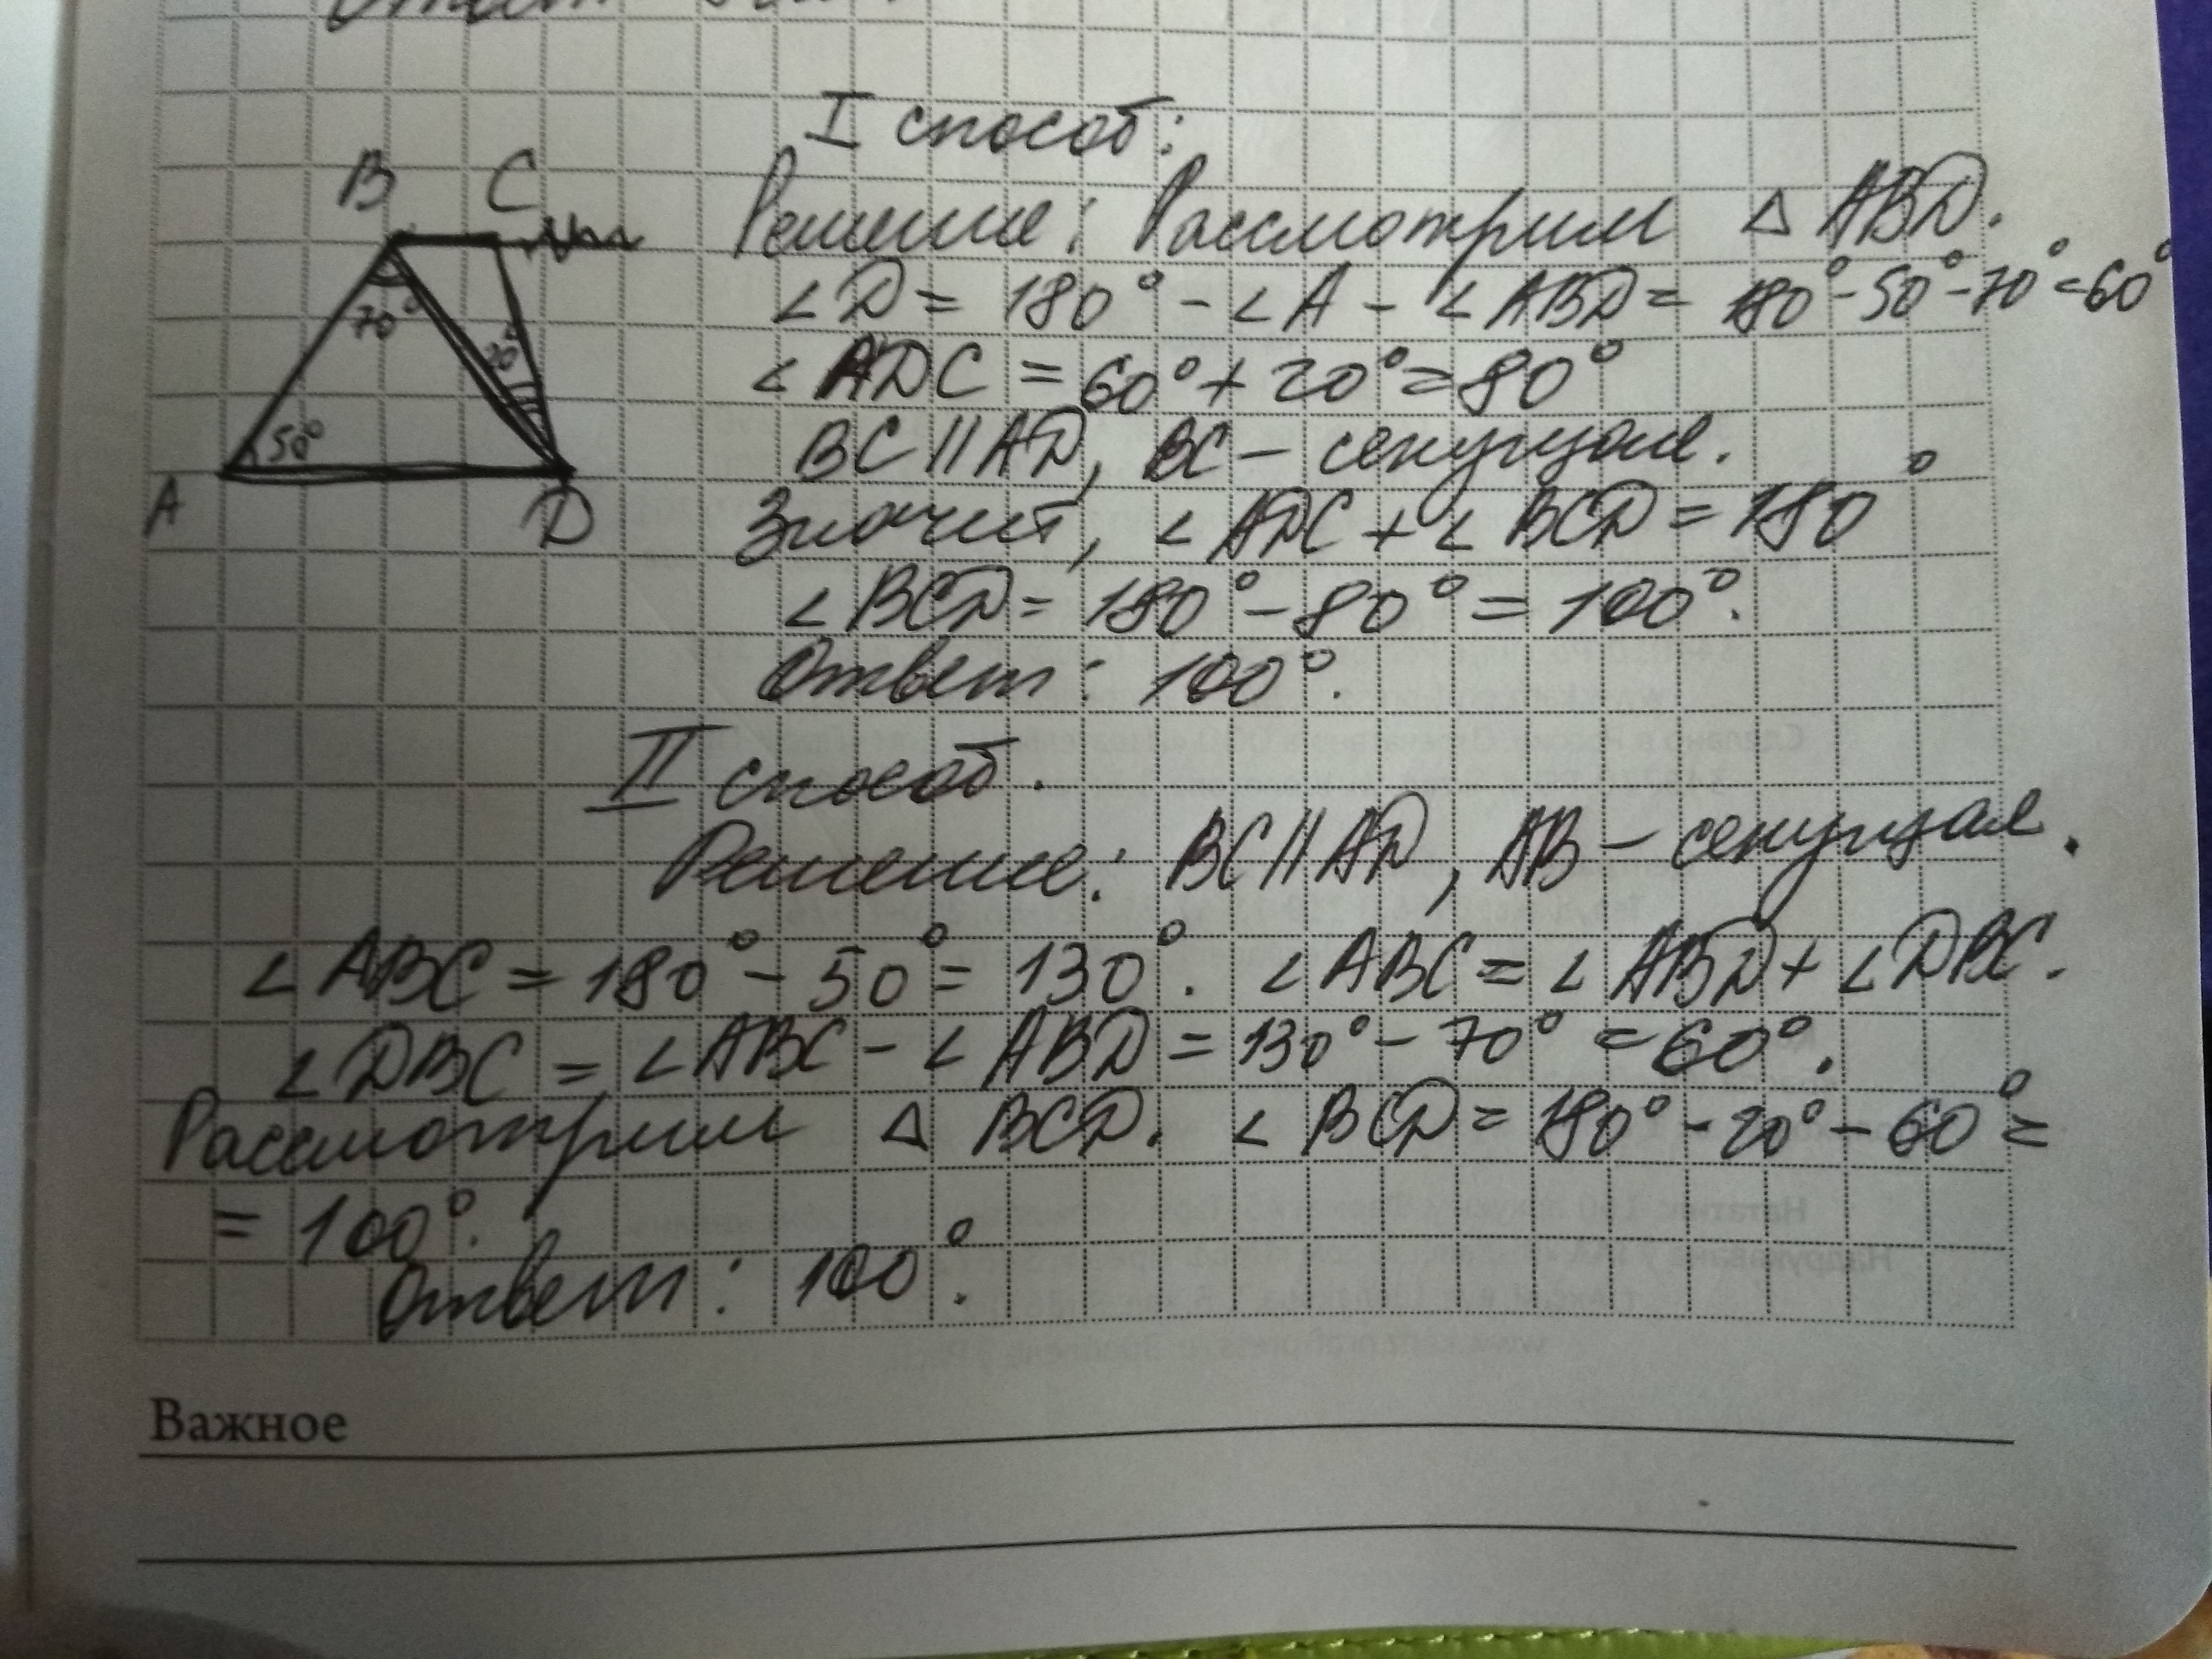 I способ:
B C
70°
20°
50°
A
D
Решение: Рассмотрим △ ABD.
∠D = 180° - ∠A - ∠ABD = 180° - 50° - 70° = 60°
∠ADC = 60° + 20° = 80°
BC || AD, BC - секущая.
Значит, ∠ADC + ∠BCD = 180°
∠BCD = 180° - 80° = 100°.
Ответ: 100°.
II способ.
Решение: BC || AD, AB - секущая.
∠ABC = 180° - 50° = 130°. ∠ABC = ∠ABD + ∠DBC.
∠DBC = ∠ABC - ∠ABD = 130° - 70° = 60°.
Рассмотрим △ BCD. ∠BCD = 180° - 20° - 60° =
= 100°.
Ответ: 100°.
Важное